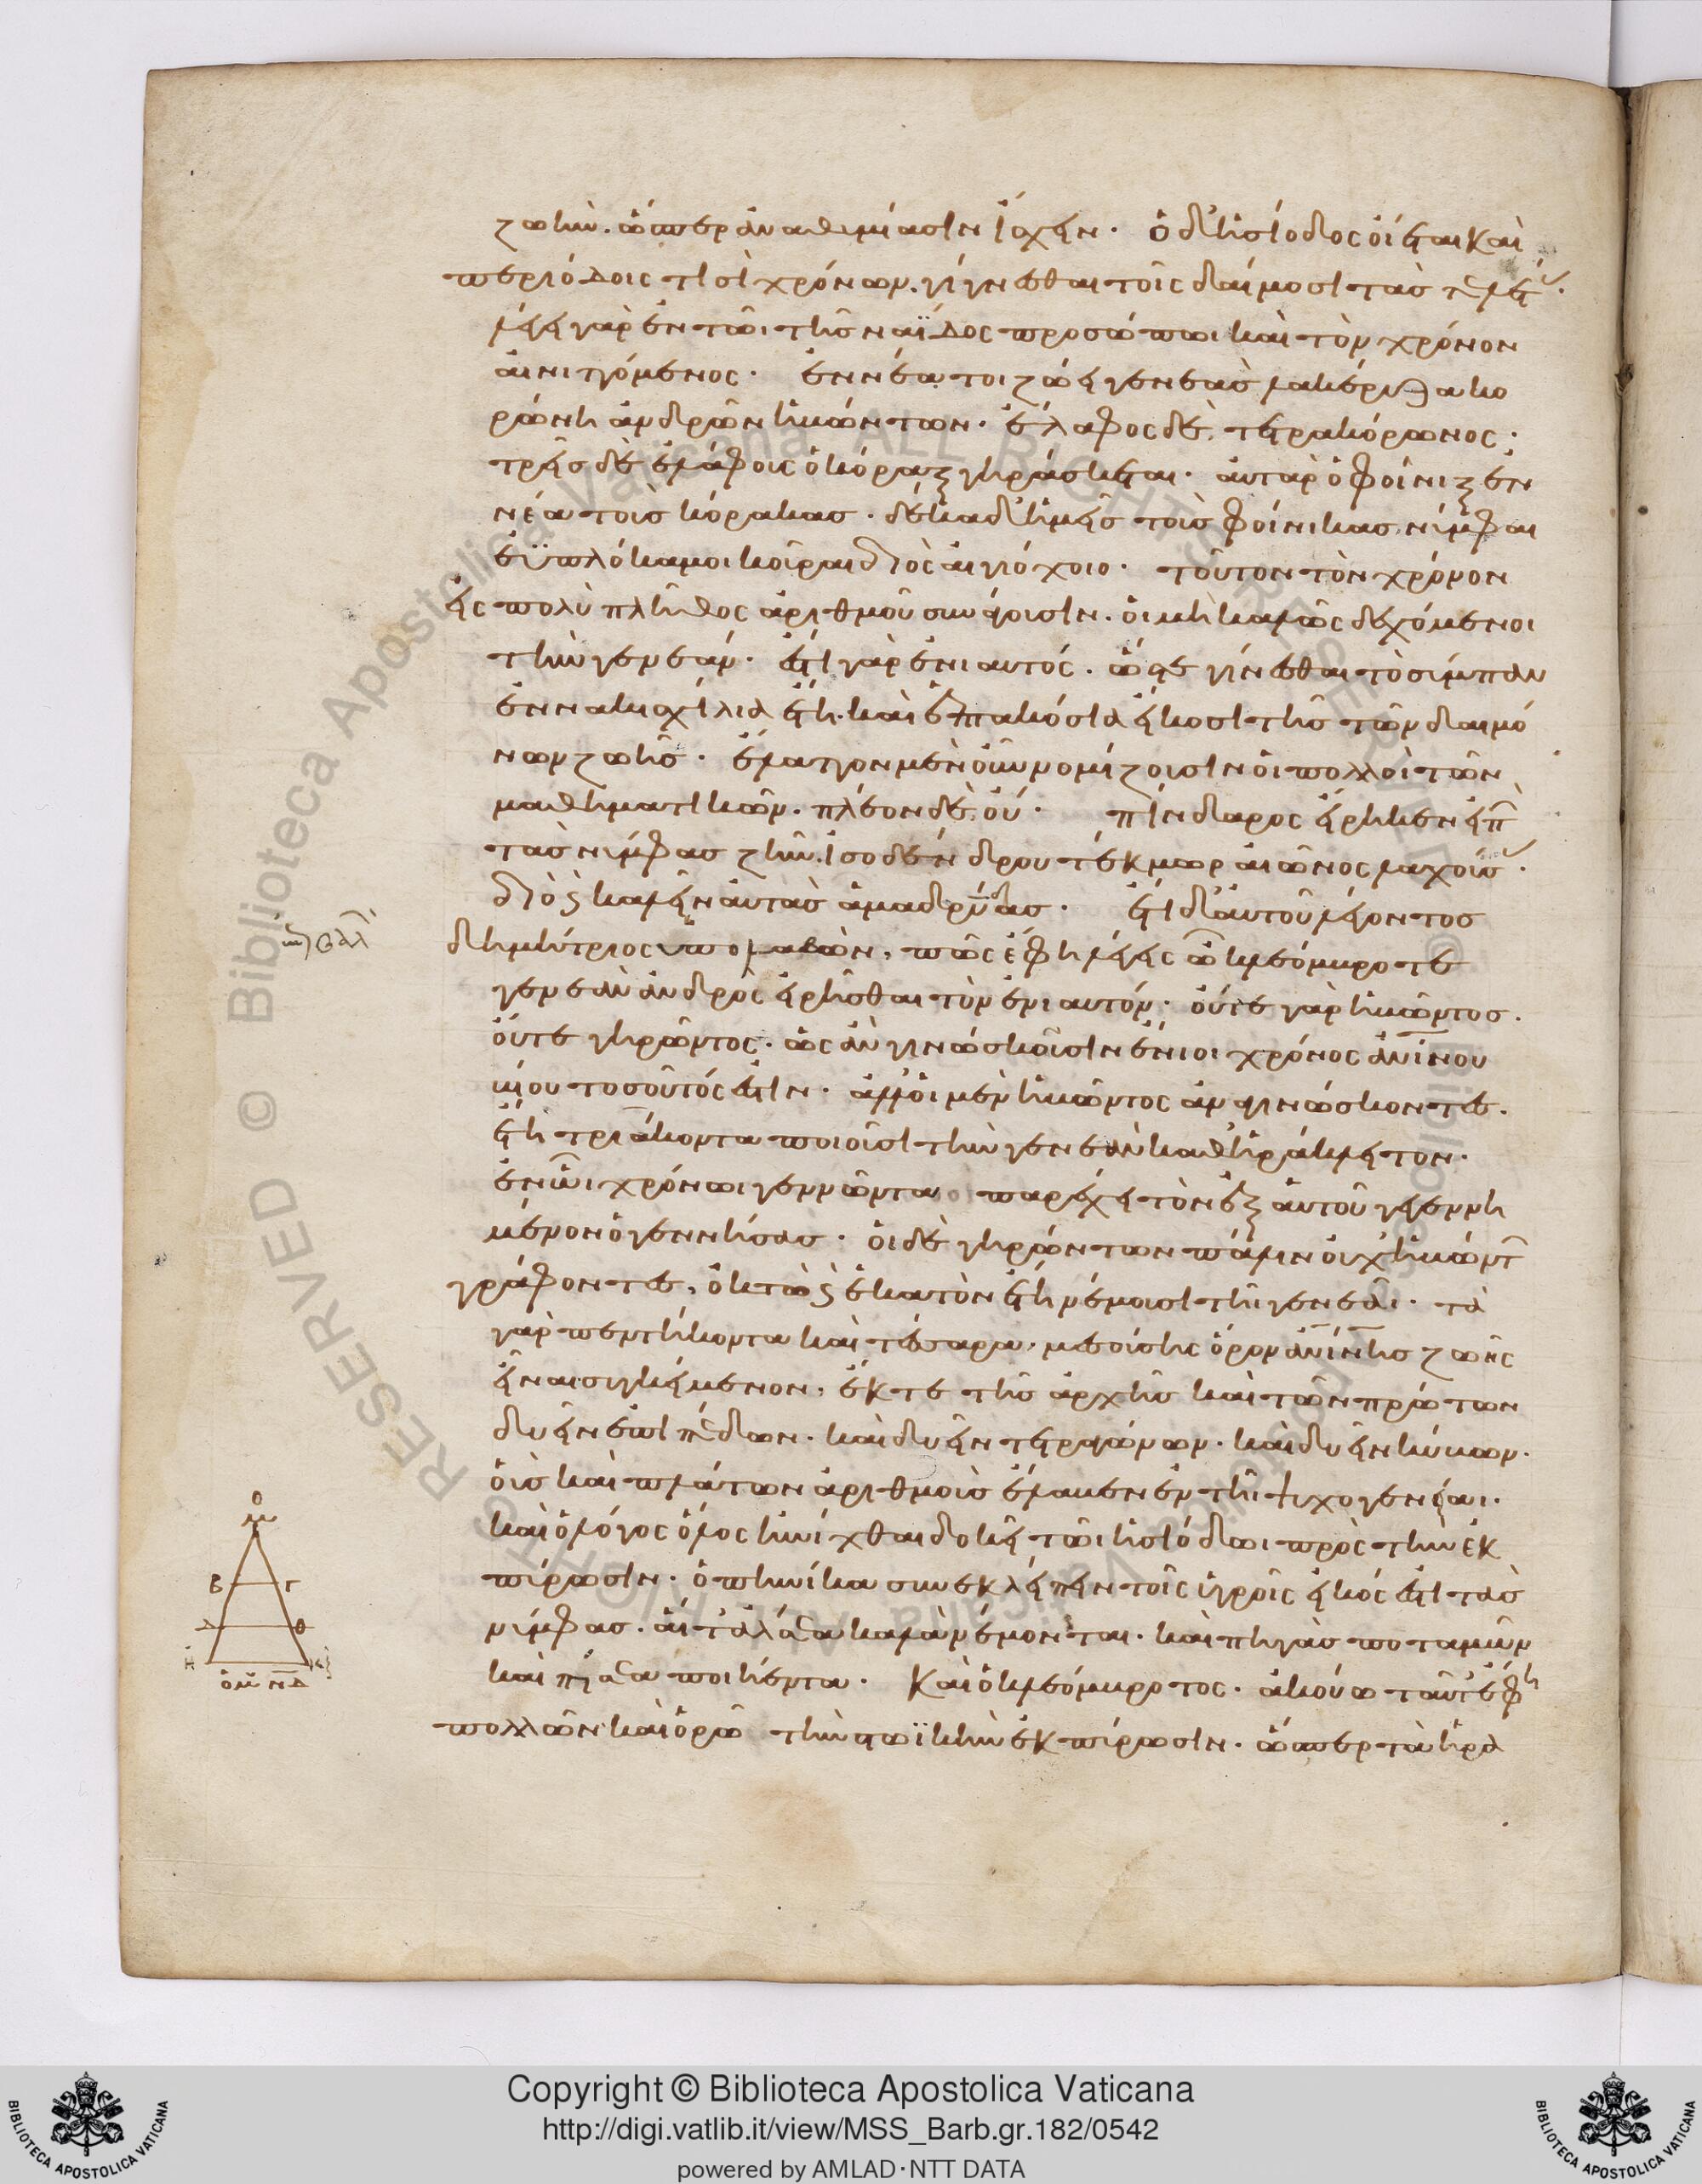 ζωὴν. ὥσπερ ἀναθυμίασιν ἴσχειν. ὁ δ' ἡσίοδος οἴεται καὶ
περιόδοις τισὶ χρόνων. γίγνεσθαι τοῖς δαίμοσι τὰς τελευτ(άς).
λέγει γὰρ ἐν τῶι τῆς ναΐδος προσώπωι καὶ τὸν χρόνον
αἰνιττόμενος. ἐννέα τοι ζώει γενεὰς λακέρυζα κο
ρώνη ἀνδρῶν ἡβώντων. ἔλαφος δέ, τετρακόρωνος.
τρεῖς δὲ ἐλάφους ὁ κόραξ γηράσκεται. αὐτὰρ ὁ φοίνιξ ἐν
νέα τοὺς κόρακας. δέκα δ' ἡμεῖς τοὺς φοίνικας νύμφαι
εὐπλόκαμοι κοῦραι διὸς αἰγιόχοιο. τοῦτον τὸν χρόνον
εἰς πολὺ πλῆθος ἀριθμοῦ συνάγουσιν. οἱ μὴ καλῶς δεχόμενοι
τὴν γενεάν. ἔστι γὰρ ἐνιαυτός. ὥστε γίνεσθαι τὸ σύμπαν
ἐννακισχίλια ἔτη. καὶ ἑπτακόσια εἴκοσι τῆς τῶν δαιμό
νων ζωῆς. ἔλαττον μὲν οὖν νομίζουσιν οἱ πολλοὶ τῶν
μαθηματικῶν. πλέον δὲ, οὐ. πίνδαρος εἴρηκεν εἰπ(ὼν)
τὰς νύμφας ζῆν. ἰσοδένδρου τέκμωρ αἰῶνος λαχούσ(ας).
διὸ ϗ καλεῖν αὐτὰς ἁμαδρυάδας. ἔτι δ' αὐτοῦ λέγοντος
δημήτριος ὑπολαβὼν, πῶς ἔφη λέγεις ὦ κλεόμβροτε
γενεὰν ἀνδρὸς εἰρῆσθαι τὸν ἐνιαυτόν. οὔτε γὰρ ἡβῶντος.
οὔτε γηρῶντος. ὡς ἀναγινώσκουσιν ἔνιοι χρόνος ἀνίνου
βίου τοσοῦτός ἐστιν. ἀλλ' οἱ μὲν ἡβῶντος ἀναγινώσκοντες.
ἔτη τριάκοντα ποιοῦσι τὴν γενεὰν καθ' ἡράκλειτον.
ἐν ὧι χρόνωι γεννῶντα παρέχει τὸν ἐξ αὐτοῦ γεγεννη
μένον ὁ γεννήσας. οἱ δὲ γηρώντων πάλιν οὐχ' ἡβώντ(ων)
γράφοντες, ὀκτὼ ϗ ἑκατὸν ἔτη νέμουσι τῆι γενεᾶι. τὰ
γὰρ πεντήκοντα καὶ τέσσαρα, μεσούσης ὅρον ἀνίνης ζωῆς
εἶναι συγκείμενον, ἔκ τε τῆς ἀρχῆς καὶ τῶν πρώτων
δυεῖν ἐπιπέδων. καὶ δυεῖν τετραγώνων. καὶ δυεῖν κύβων.
οὓς καὶ πλάτων ἀριθμοὺς ἔλαβεν ἐν τῆι ψυχογενείαι.
καὶ ὁ λόγος ὅλος ἠινίχθαι δοκεῖ τῶι ἡσιόδωι πρὸς τὴν ἐκ
πύρωσιν. ὁπηνίκα συνεκλείπειν τοῖς ὑγροῖς εἰκός ἐστι τὰς
νύμφας. αἵ τ' ἄλσεα καλὰ νέμονται. καὶ πηγὰς ποταμῶν
καὶ πίσεα ποιήεντα. καὶ ὁ κλεόμβροτος. ἀκούω ταῦτ' ἔφη
πολλῶν καὶ ὁρῶ τὴν στωϊκὴν ἐκπύρωσιν. ὥσπερ τὰ ἡρα
Β Γ
Δ Θ
Η Κ
ὁμοῦ ΝΔ
Copyright © Biblioteca Apostolica Vaticana
http://digi.vatlib.it/view/MSS_Barb.gr.182/0542
powered by AMLAD·NTT DATA
BIBLIOTECA APOSTOLICA VATICANA
BIBLIOTECA APOSTOLICA VATICANA